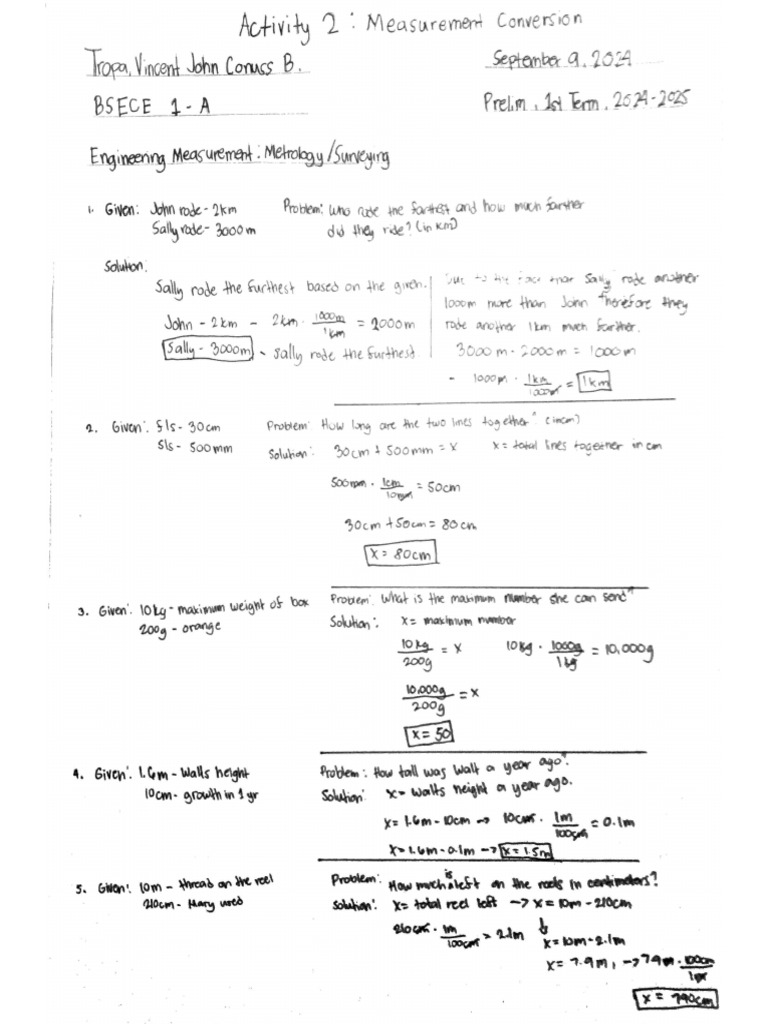 Activity 2 : Measurement Conversion
Tropa, Vincent John Conuss B.
September 9, 2024
BSECE 1 - A
Prelim, 1st Term, 2024-2025
Engineering Measurement: Metrology/Surveying
1. Given: John rode - 2km
Sally rode - 3000m
Problem: Who rode the farthest and how much farther
did they ride? (in km)
Solution:
Sally rode the furthest based on the given.
John - 2km - 2km · 1000m/1km = 2000m
Sally - 3000m - Sally rode the furthest.
Due to the fact that Sally rode another
1000m more than John Therefore they
rode another 1km much farther.
3000m - 2000m = 1000m
- 1000m · 1km/1000m = 1km
2. Given: S/s - 30cm
S/s - 500mm
Problem: How long are the two lines together" (incm)
Solution: 30cm + 500mm = x x = total lines together in cm
500mm · 1cm/10mm = 50cm
30cm + 50cm = 80cm
x = 80cm
3. Given: 10kg - maximum weight of box
200g - orange
Problem: What is the maximum number she can send"
Solution: x = maximum number
10kg/200g = x 10kg · 1000g/1kg = 10,000g
10,000g/200g = x
x = 50
4. Given: 1.6m - Walls height
10cm - growth in 1 yr
Problem: How tall was Walt a year ago".
Solution: x = Walts height a year ago.
x = 1.6m - 10cm -> 10cm · 1m/100cm = 0.1m
x = 1.6m - 0.1m -> x = 1.5m
5. Given: 10m - thread on the reel
210cm - Mary used
Problem: How much is left on the reels in centimeters?
Solution: x = total reel left -> x = 10m - 210cm
210cm · 1m/100cm = 2.1m
x = 10m - 2.1m
x = 7.9m, -> 7.9m · 100cm/1m
x = 790cm